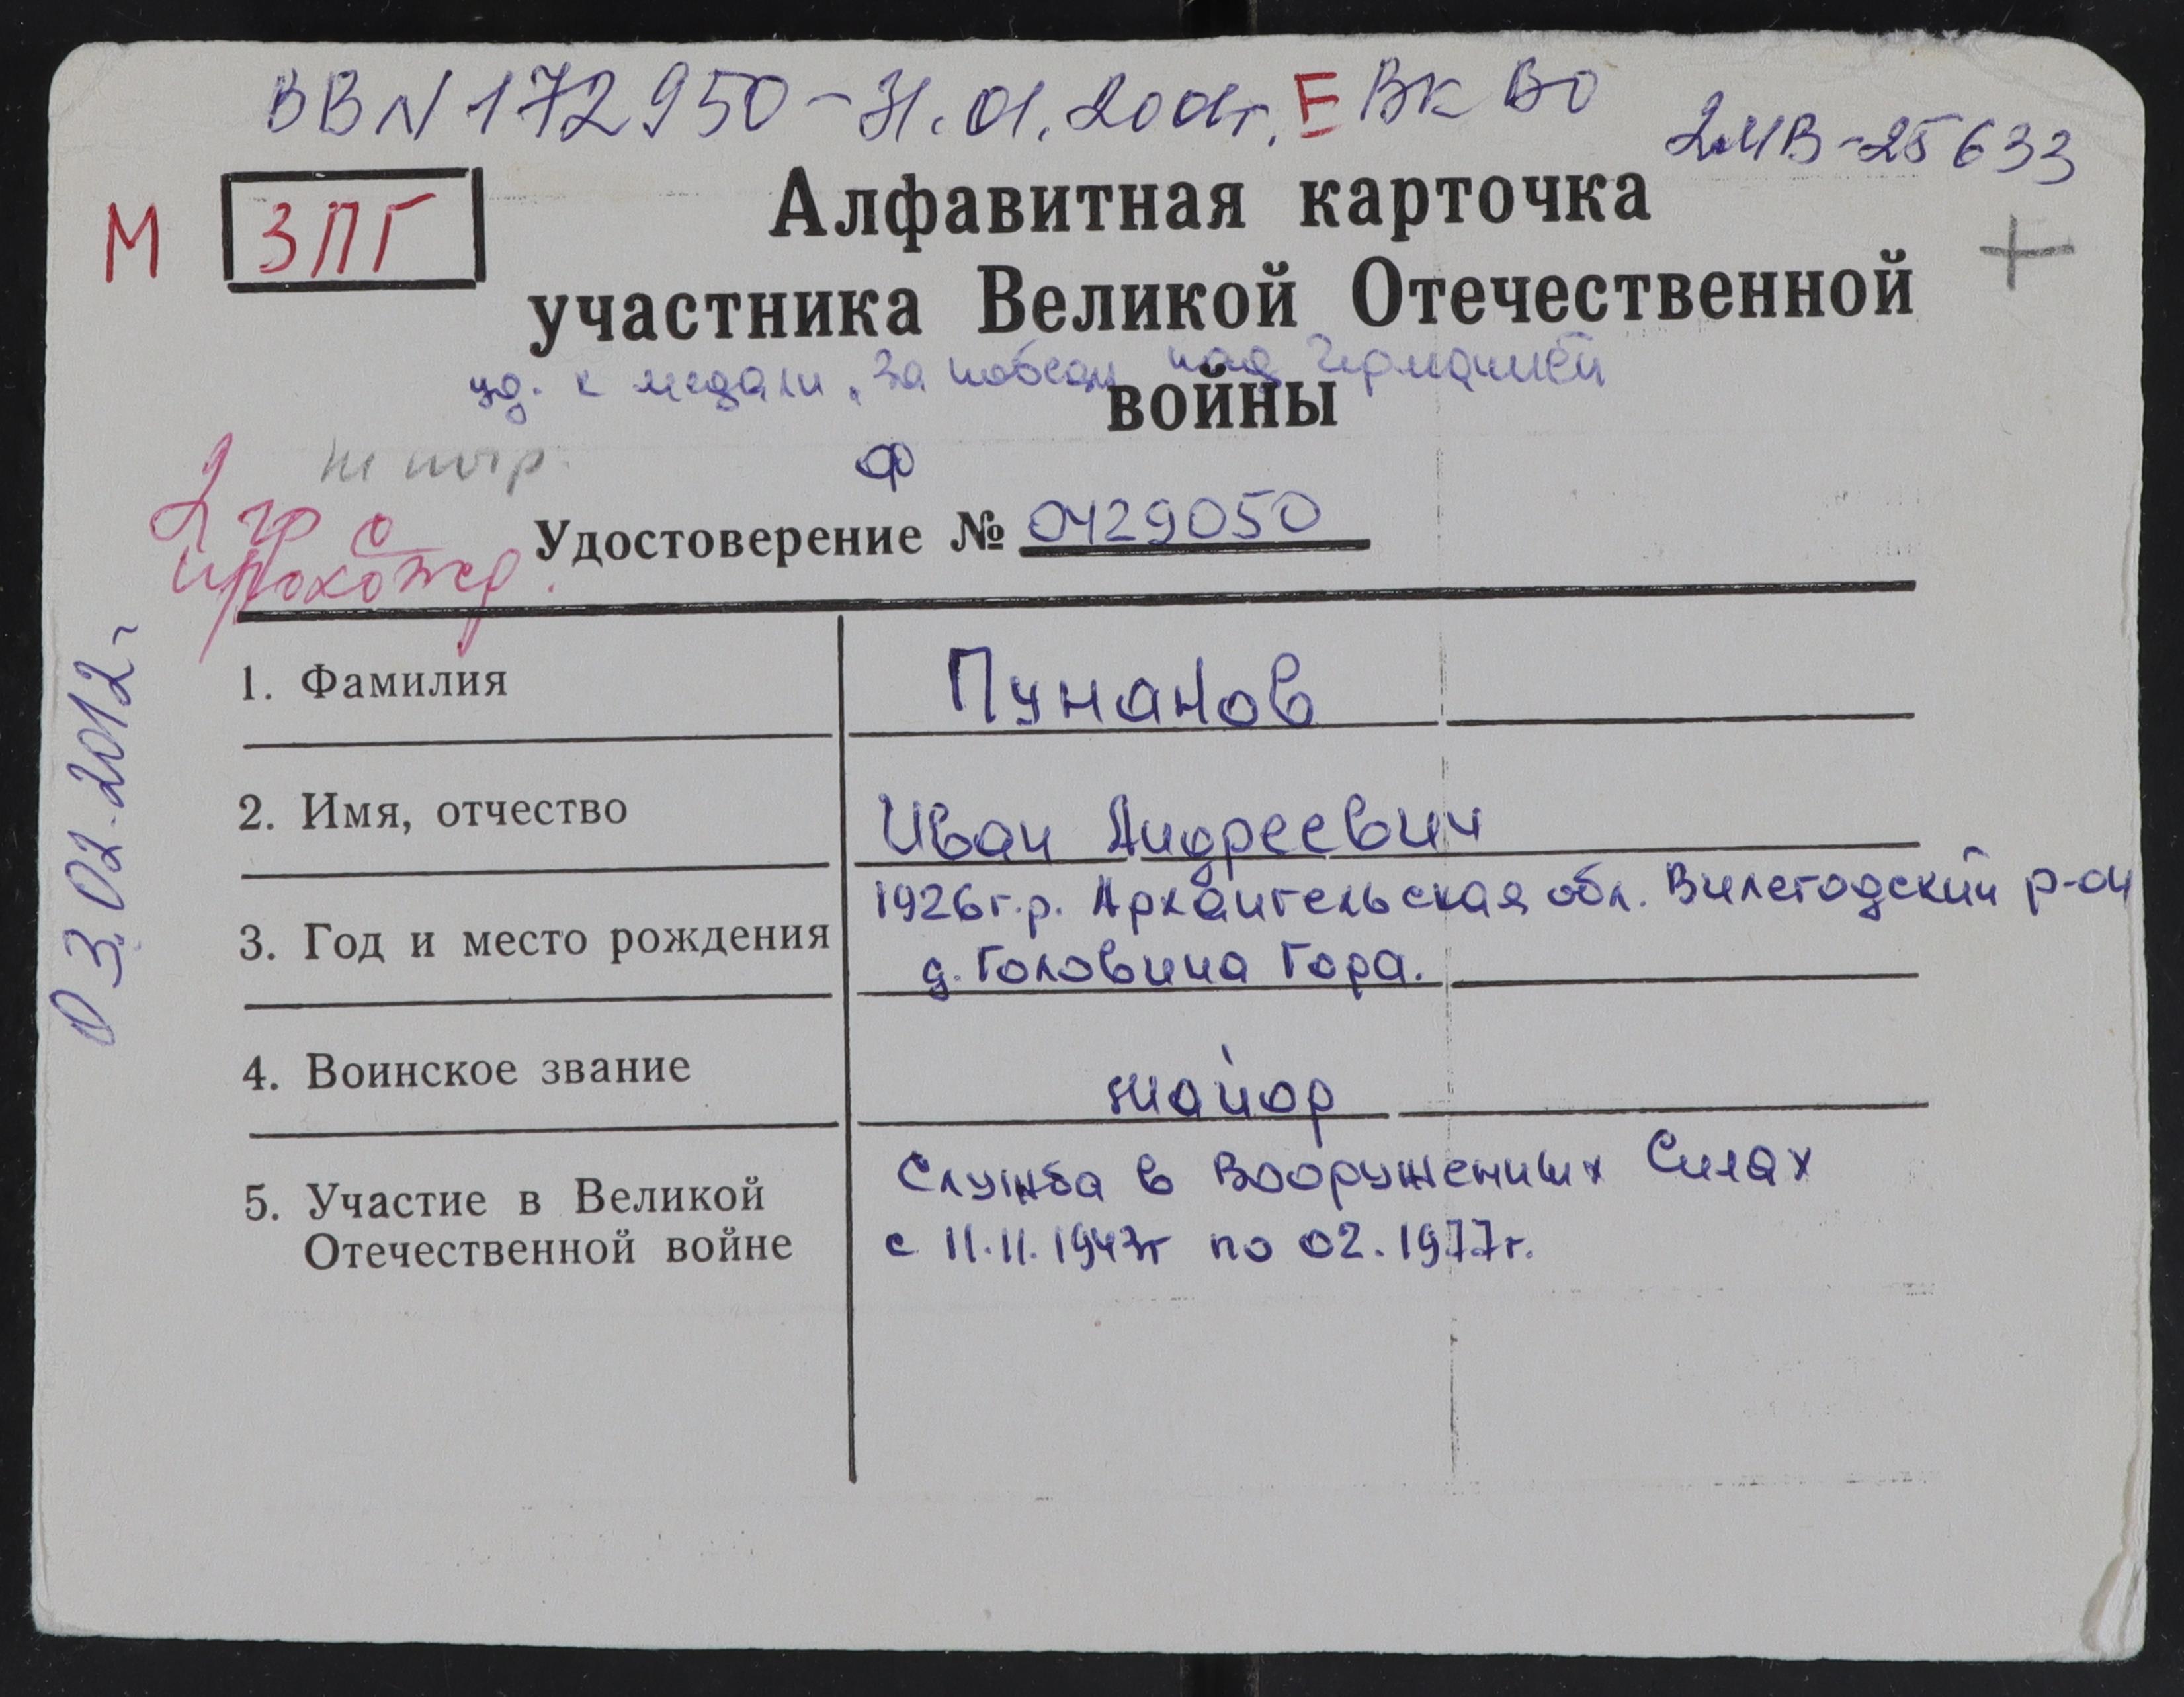 ВВ N 172950 - 31.01.2001г. Е ВК ВО
2МВ-25633
М ЗПГ
Алфавитная карточка
участника Великой Отечественной
уд. к медали „За победу над Германией
войны
2 гр
прохожд.
Ф
Удостоверение № 0429050
03.02.2012г
1. Фамилия Пунанов
2. Имя, отчество Иван Андреевич
3. Год и место рождения 1926г.р. Архангельская обл. Вилегодский р-он
д. Головина Гора.
4. Воинское звание майор
5. Участие в Великой Служба в Вооруженных Силах
Отечественной войне с 11.11.1943г по 02.1977г.